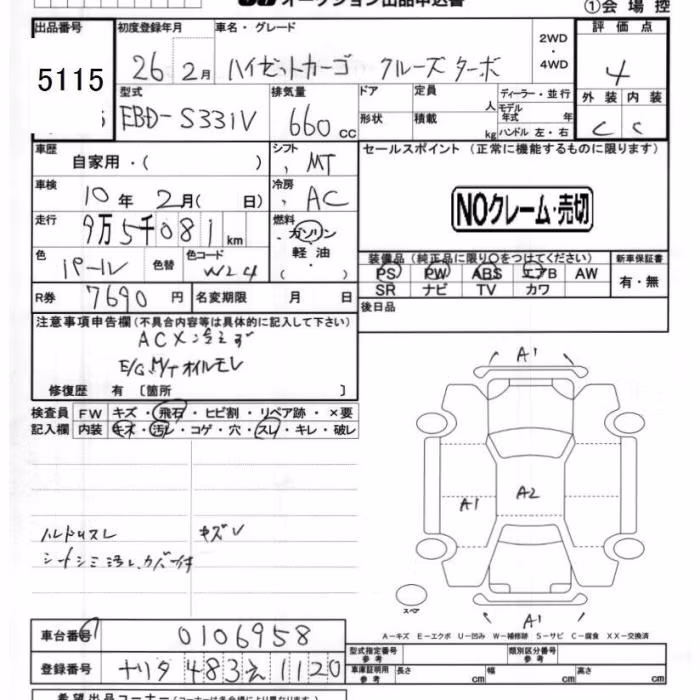 オークション出品申込書
①会場控
出品番号
5115
初度登録年月
26 2月
車名・グレード
ハイゼットカーゴ クルーズターボ
2WD
・
4WD
評価点
4
外装 内装
C C
型式
EBD-S331V
排気量
660cc
ドア
形状
定員
人
積載
kg
ディーラー・並行
モデル
年式 年
ハンドル 左・右
車歴
自家用・( )
シフト
, MT
車検
10年 2月( 日)
冷房
, AC
走行
9万5千081km
燃料
・ガソリン
・軽油
・( )
色
パール
色替
色コード
W24
R券
7690円
名変期限 月 日
セールスポイント (正常に機能するものに限ります)
NOクレーム・売切
装備品(純正品に限り○をつけてください)
PS PW ABS エアB AW
SR ナビ TV カワ
新車保証書
有・無
後日品
注意事項申告欄(不具合内容等は具体的に記入して下さい)
ACX冷えず
E/G、M/Tオイルモレ
修復歴 有 〔箇所 〕
検査員
記入欄
FW キズ・飛石・ヒビ割・リペア跡・×要
内装 キズ・汚レ・コゲ・穴・スレ・キレ・破レ
ハンドルスレ キズレ
シートシミ汚レ、カバー付
A1
A1
A2
スペア
A1
A-キズ E-エクボ U-凹み W-補修跡 S-サビ C-腐食 XX-交換済
車台番号
0106958
登録番号
ナリタ 483 え 1120
型式指定番号
参考
類別区分番号
参考
車庫証明用
参考
長さ cm 幅 cm 高さ cm
希望出品コーナー(コーナーは各会場により異なります)